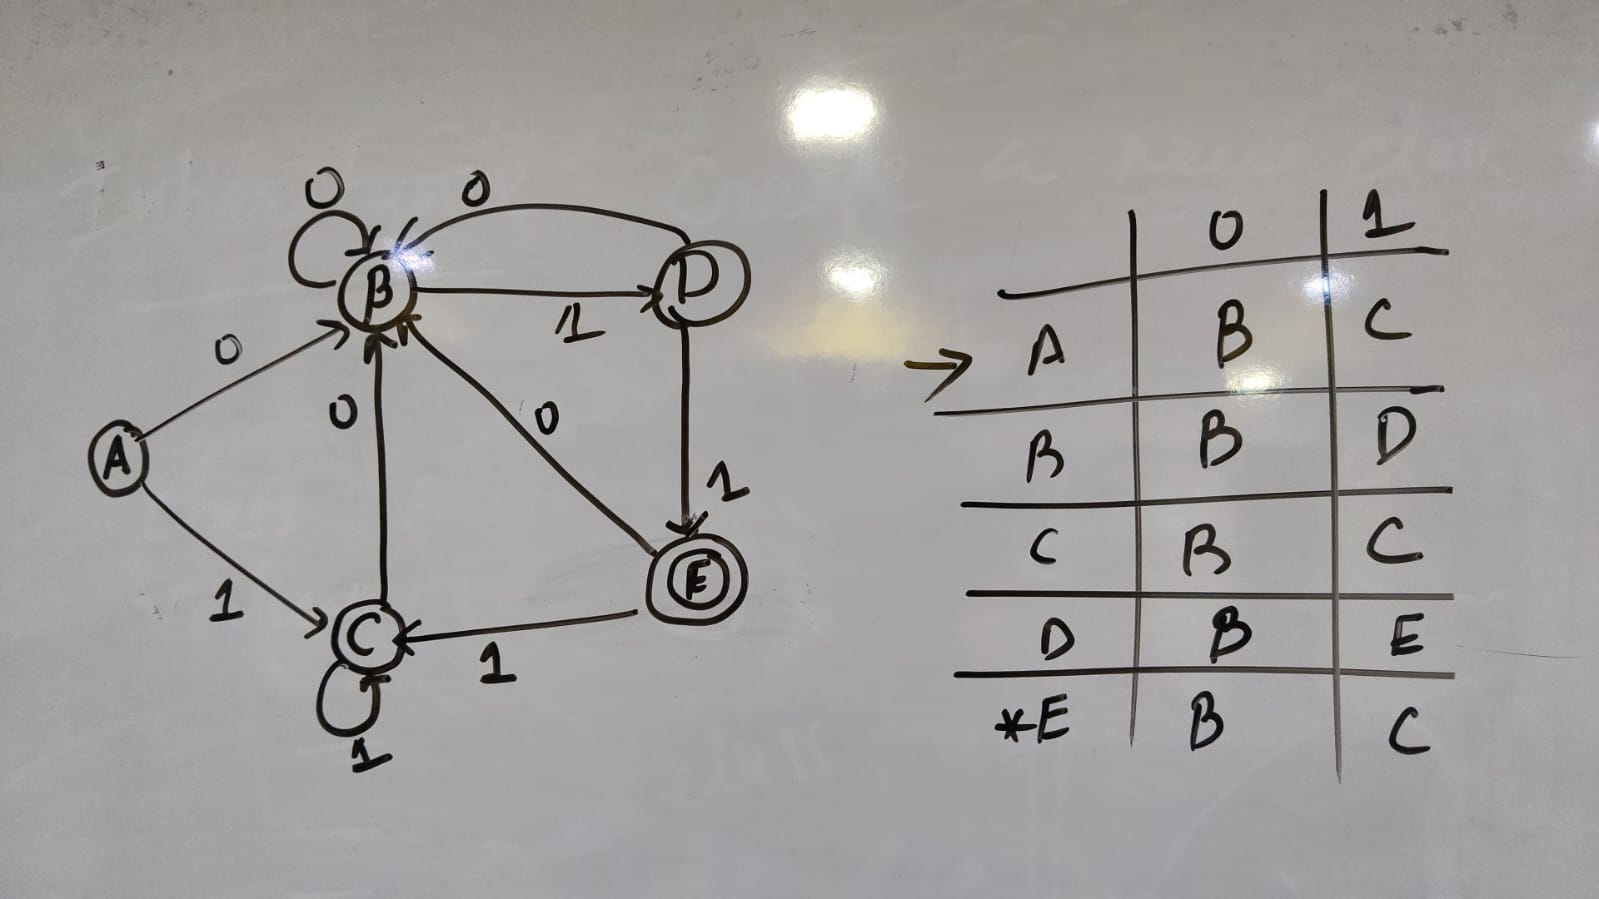 0
0
B
D
1
0
0
0
A
1
1
E
C
1
1
0 1
→ A B C
B B D
C B C
D B E
*E B C